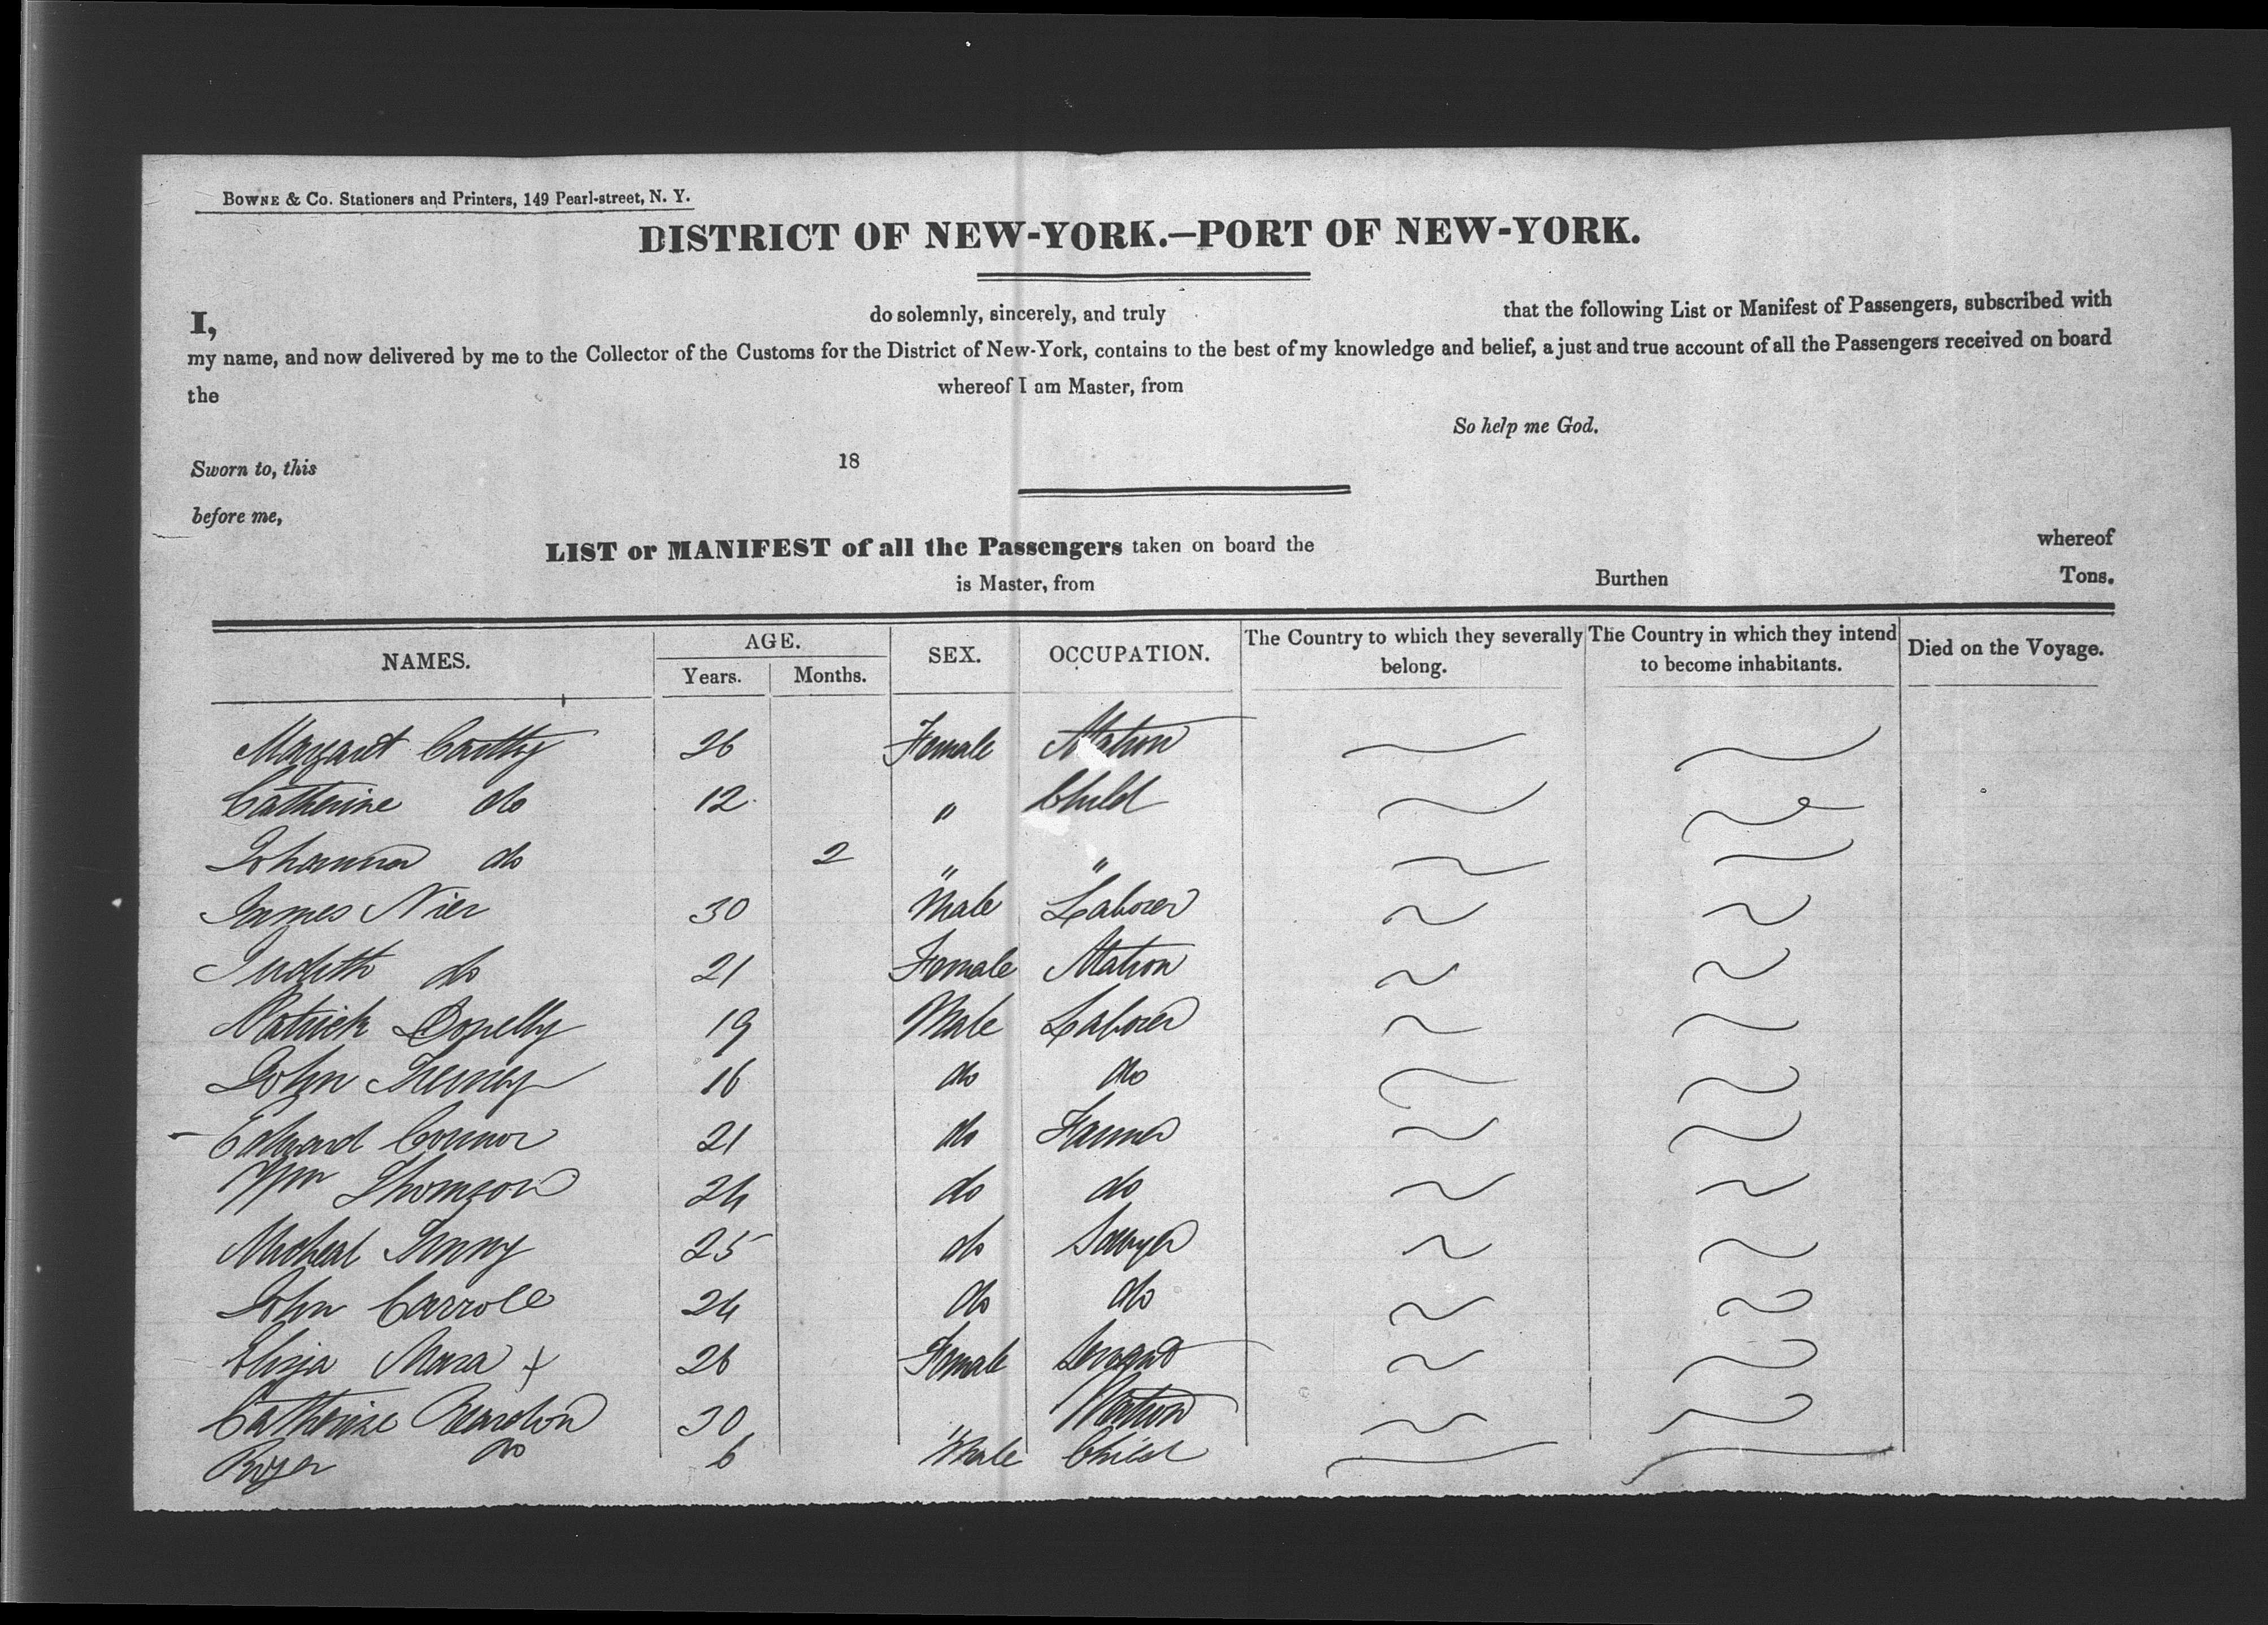 BOWNE & Co. Stationers and Printers, 149 Pearl-street, N. Y.
DISTRICT OF NEW-YORK.—PORT OF NEW-YORK.
I, do solemnly, sincerely, and truly that the following List or Manifest of Passengers, subscribed with
my name, and now delivered by me to the Collector of the Customs for the District of New-York, contains to the best of my knowledge and belief, a just and true account of all the Passengers received on board
the whereof I am Master, from
So help me God.
Sworn to, this 18
before me,
LIST or MANIFEST of all the Passengers taken on board the whereof
is Master, from Burthen Tons.
NAMES. AGE. Years. Months. SEX. OCCUPATION. The Country to which they severally belong. The Country in which they intend to become inhabitants. Died on the Voyage.
Margaret Carthy 26 Female Matron
Catherine do 12 " Child
Johanna do 2 " "
James Nier 30 Male Laborer
Judith do 21 Female Matron
Patrick Donelly 19 Male Laborer
John 16 do do
Edward Connor 21 do Farmer
Wm Thomson 24 do do
Micheal 25 do Sawyer
John Carrole 24 do do
Eliza Mara + 26 Female Servant
Catherine Reardon 30 " Matron
Roger do 6 Male Child